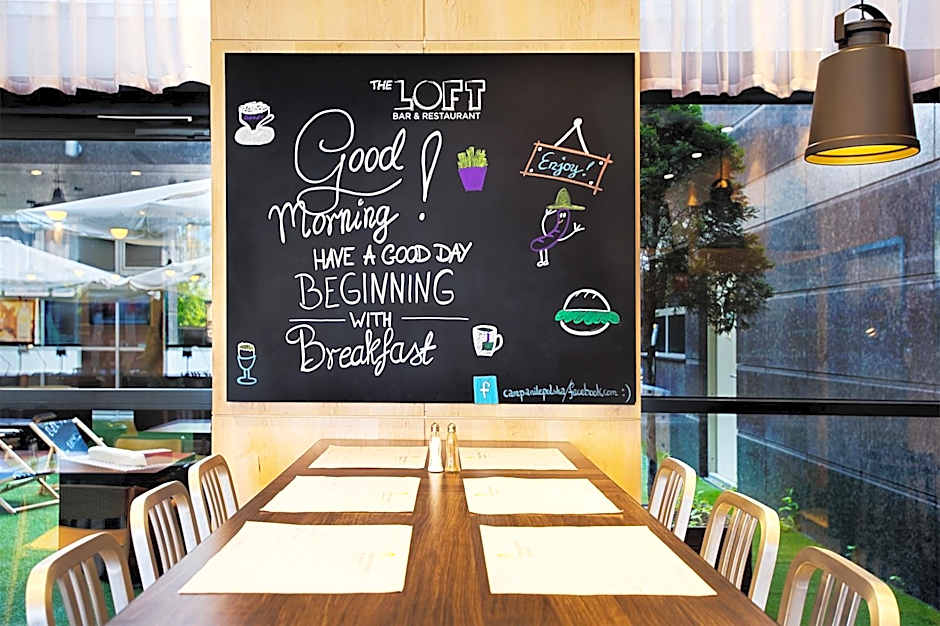 THE LOFT
BAR & RESTAURANT
Good
Morning!
HAVE A GOOD DAY
BEGINNING
WITH
Breakfast
Enjoy!
f campanilepolska/facebook.com :)